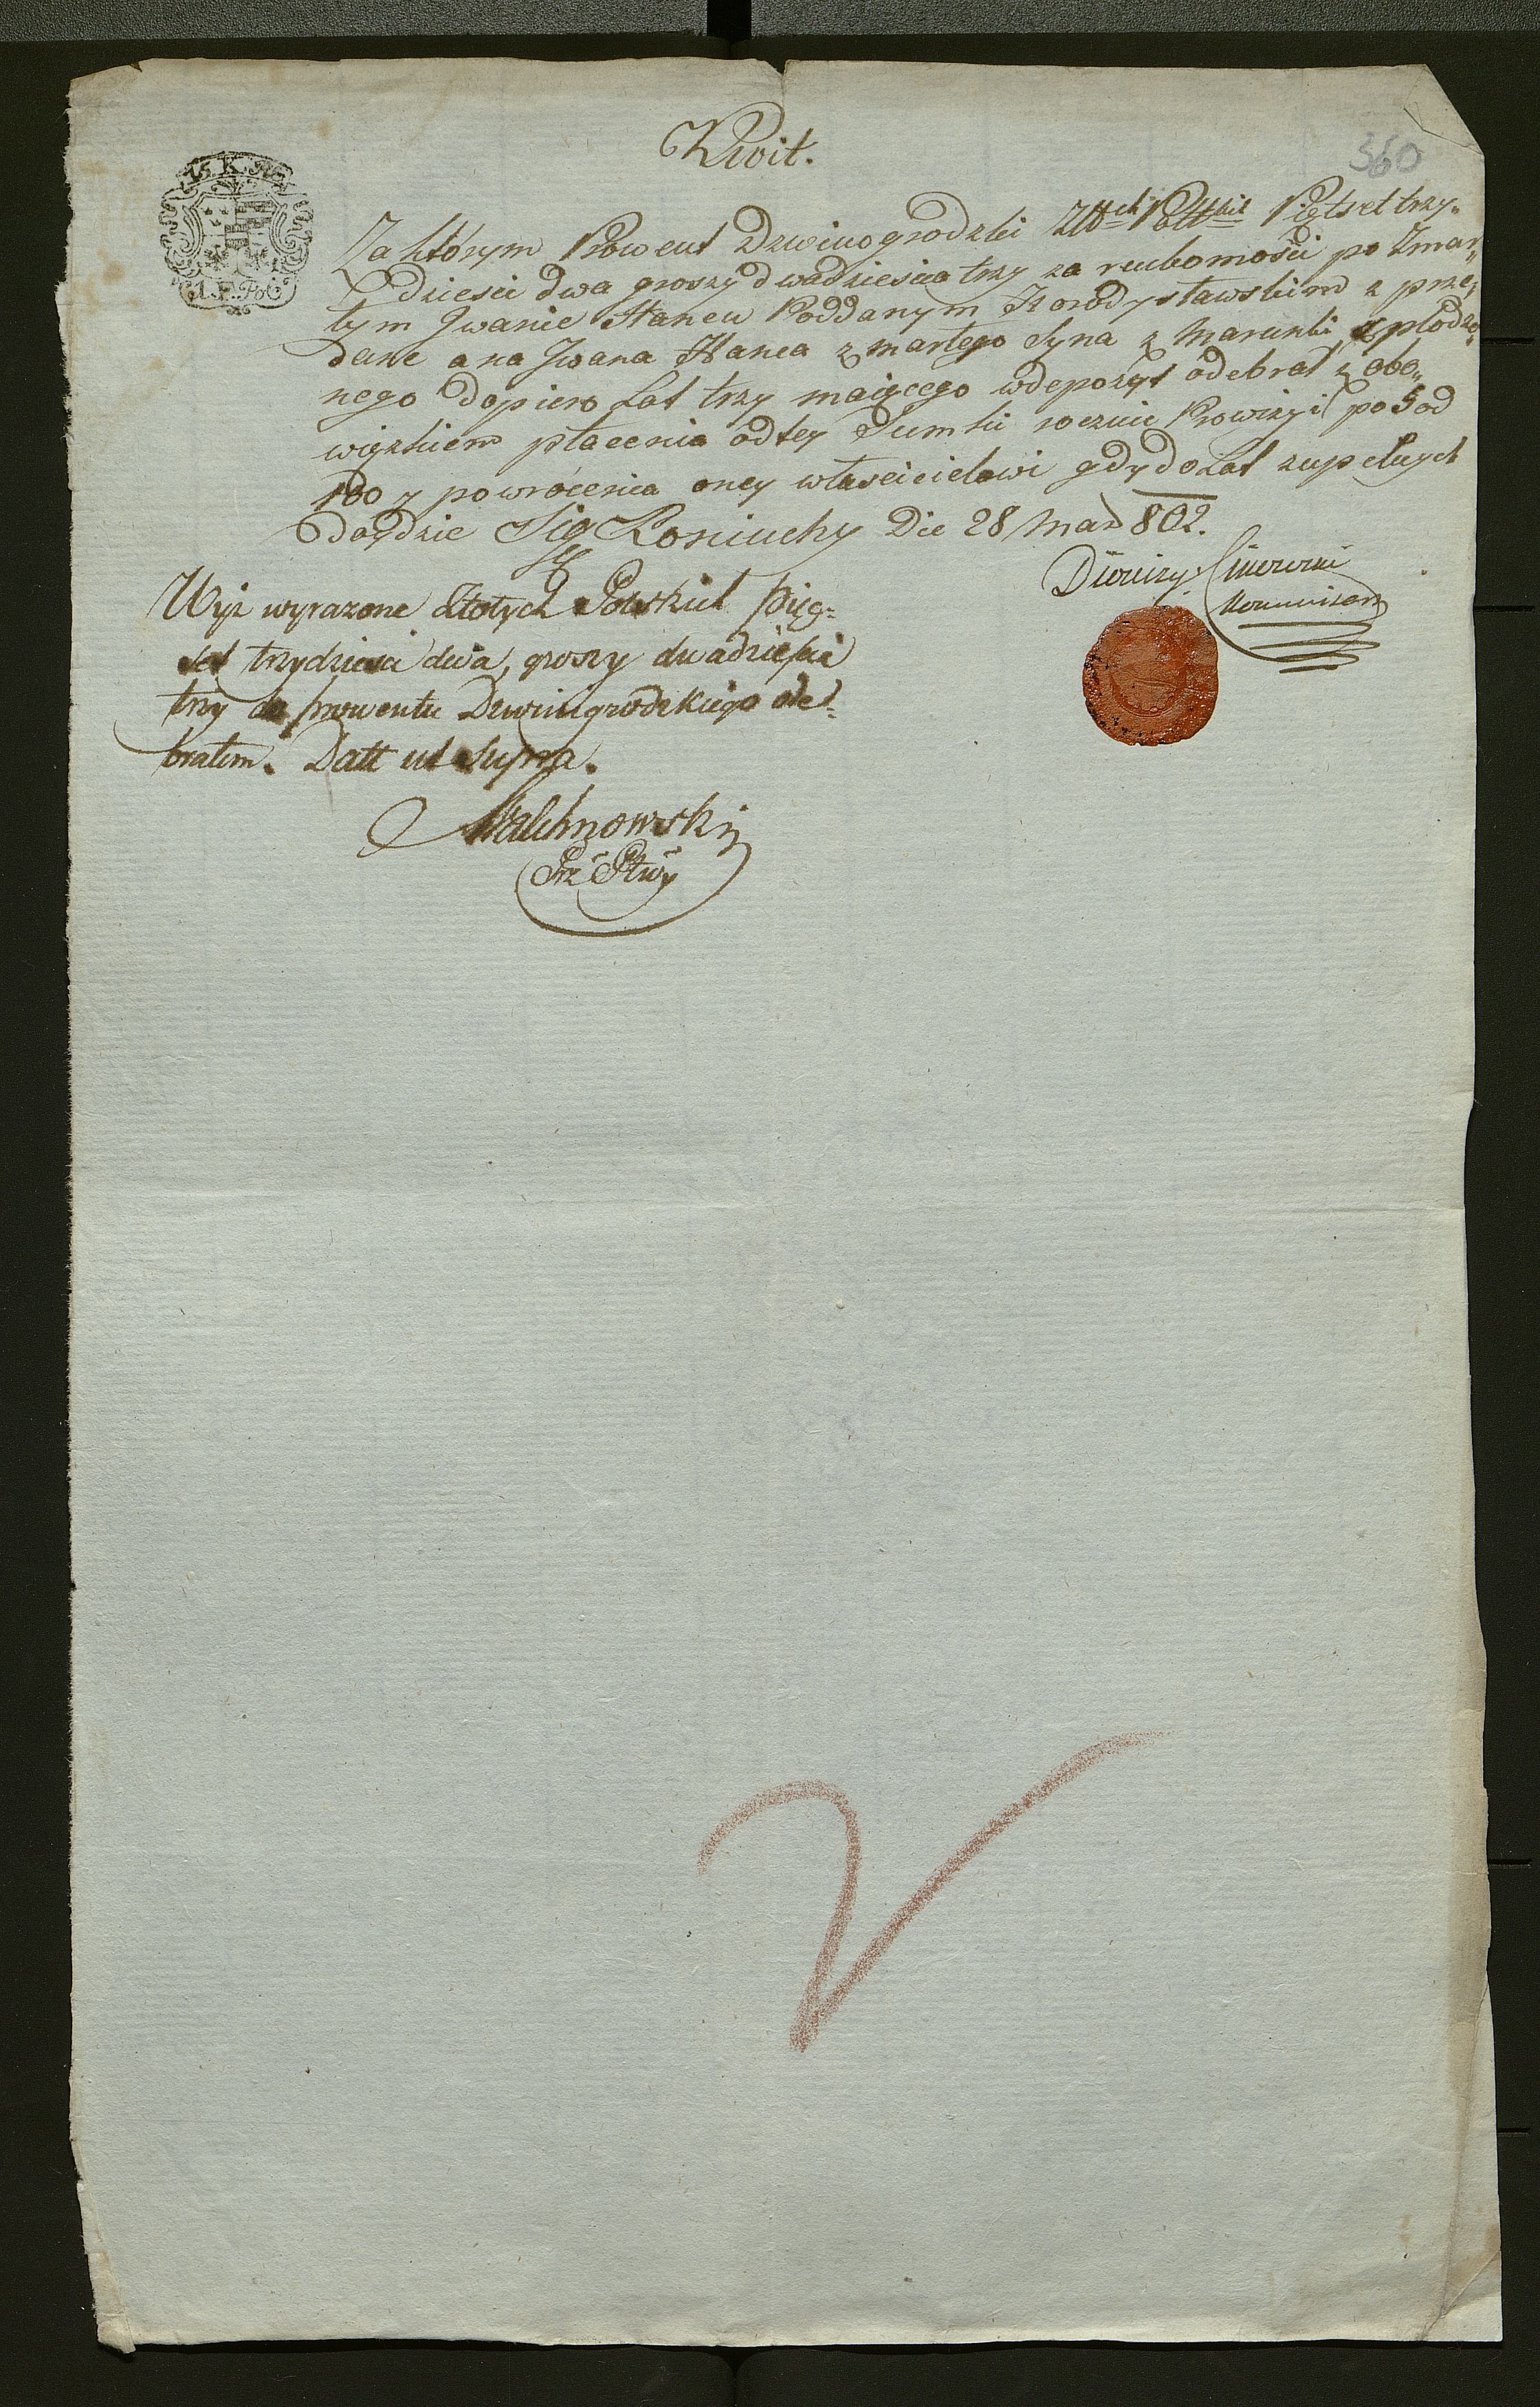 Kwit.
360
15. K. N.
A. F. Pol
Za którym Prowent Dzwinogrodzki Złtch Pollskich Piętset trzy„
dzieści dwa groszy dwadzieścia trzy za ruchomości po Zmar„
tym Jwanie Hancu Poddanym Horodysławskim z prze„
dane a na Jwana Hanca zmarłego Syna z Marunki zpłodzo„
nego dopiero Lat trzy maiącego wdepozyt odebrał z obo„
wiązkiem płacenia odtey Sumki rocznie Prowizyi po 5 od
100 y powrócenia oney własciicielowi gdy do Lat zupełnych
doydzie Sig Koniuchy Die 28 Mar 802.
Dionizy
Wyż wyrazone Złotych Polskich pięg=
set trzydziesci dwa, groszy dwadziescia
trzy do prowentu Dzwinigrodzkiego ode=
brałem. Datt ut Supra.
Malchnowski